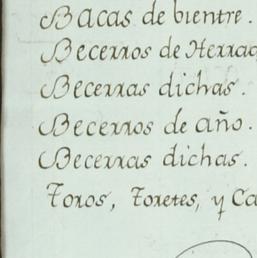 Bacas de bientre.
Becerros de Herra
Becerras dichas.
Becerros de año.
Becerras dichas.
Toros, Toretes, y Ca